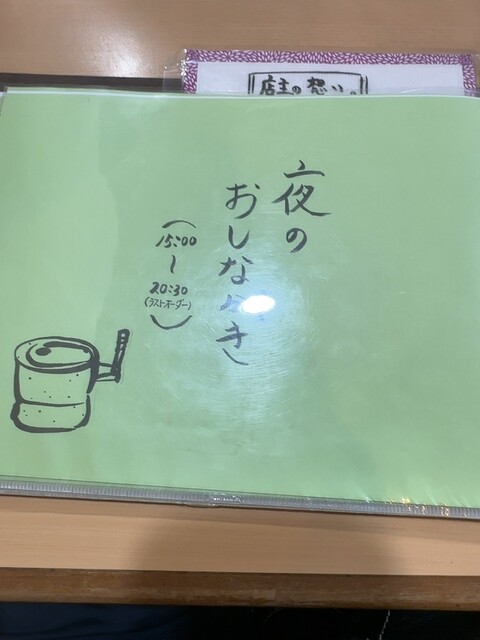 店主の想い。
夜の
おしながき
(15:00
〜
20:30
(ラストオーダー)
)